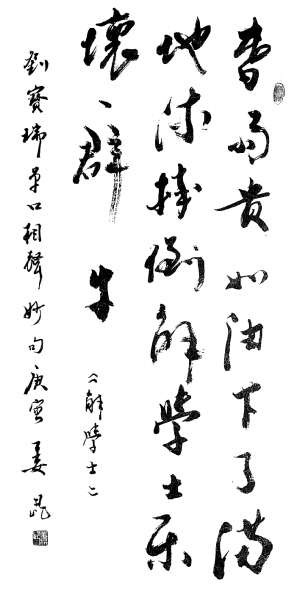 春雨貴如油下了滿
地流摔倒解學士乐
壞一群牛
《解學士》
劉寶瑞單口相聲妙句庚寅姜昆